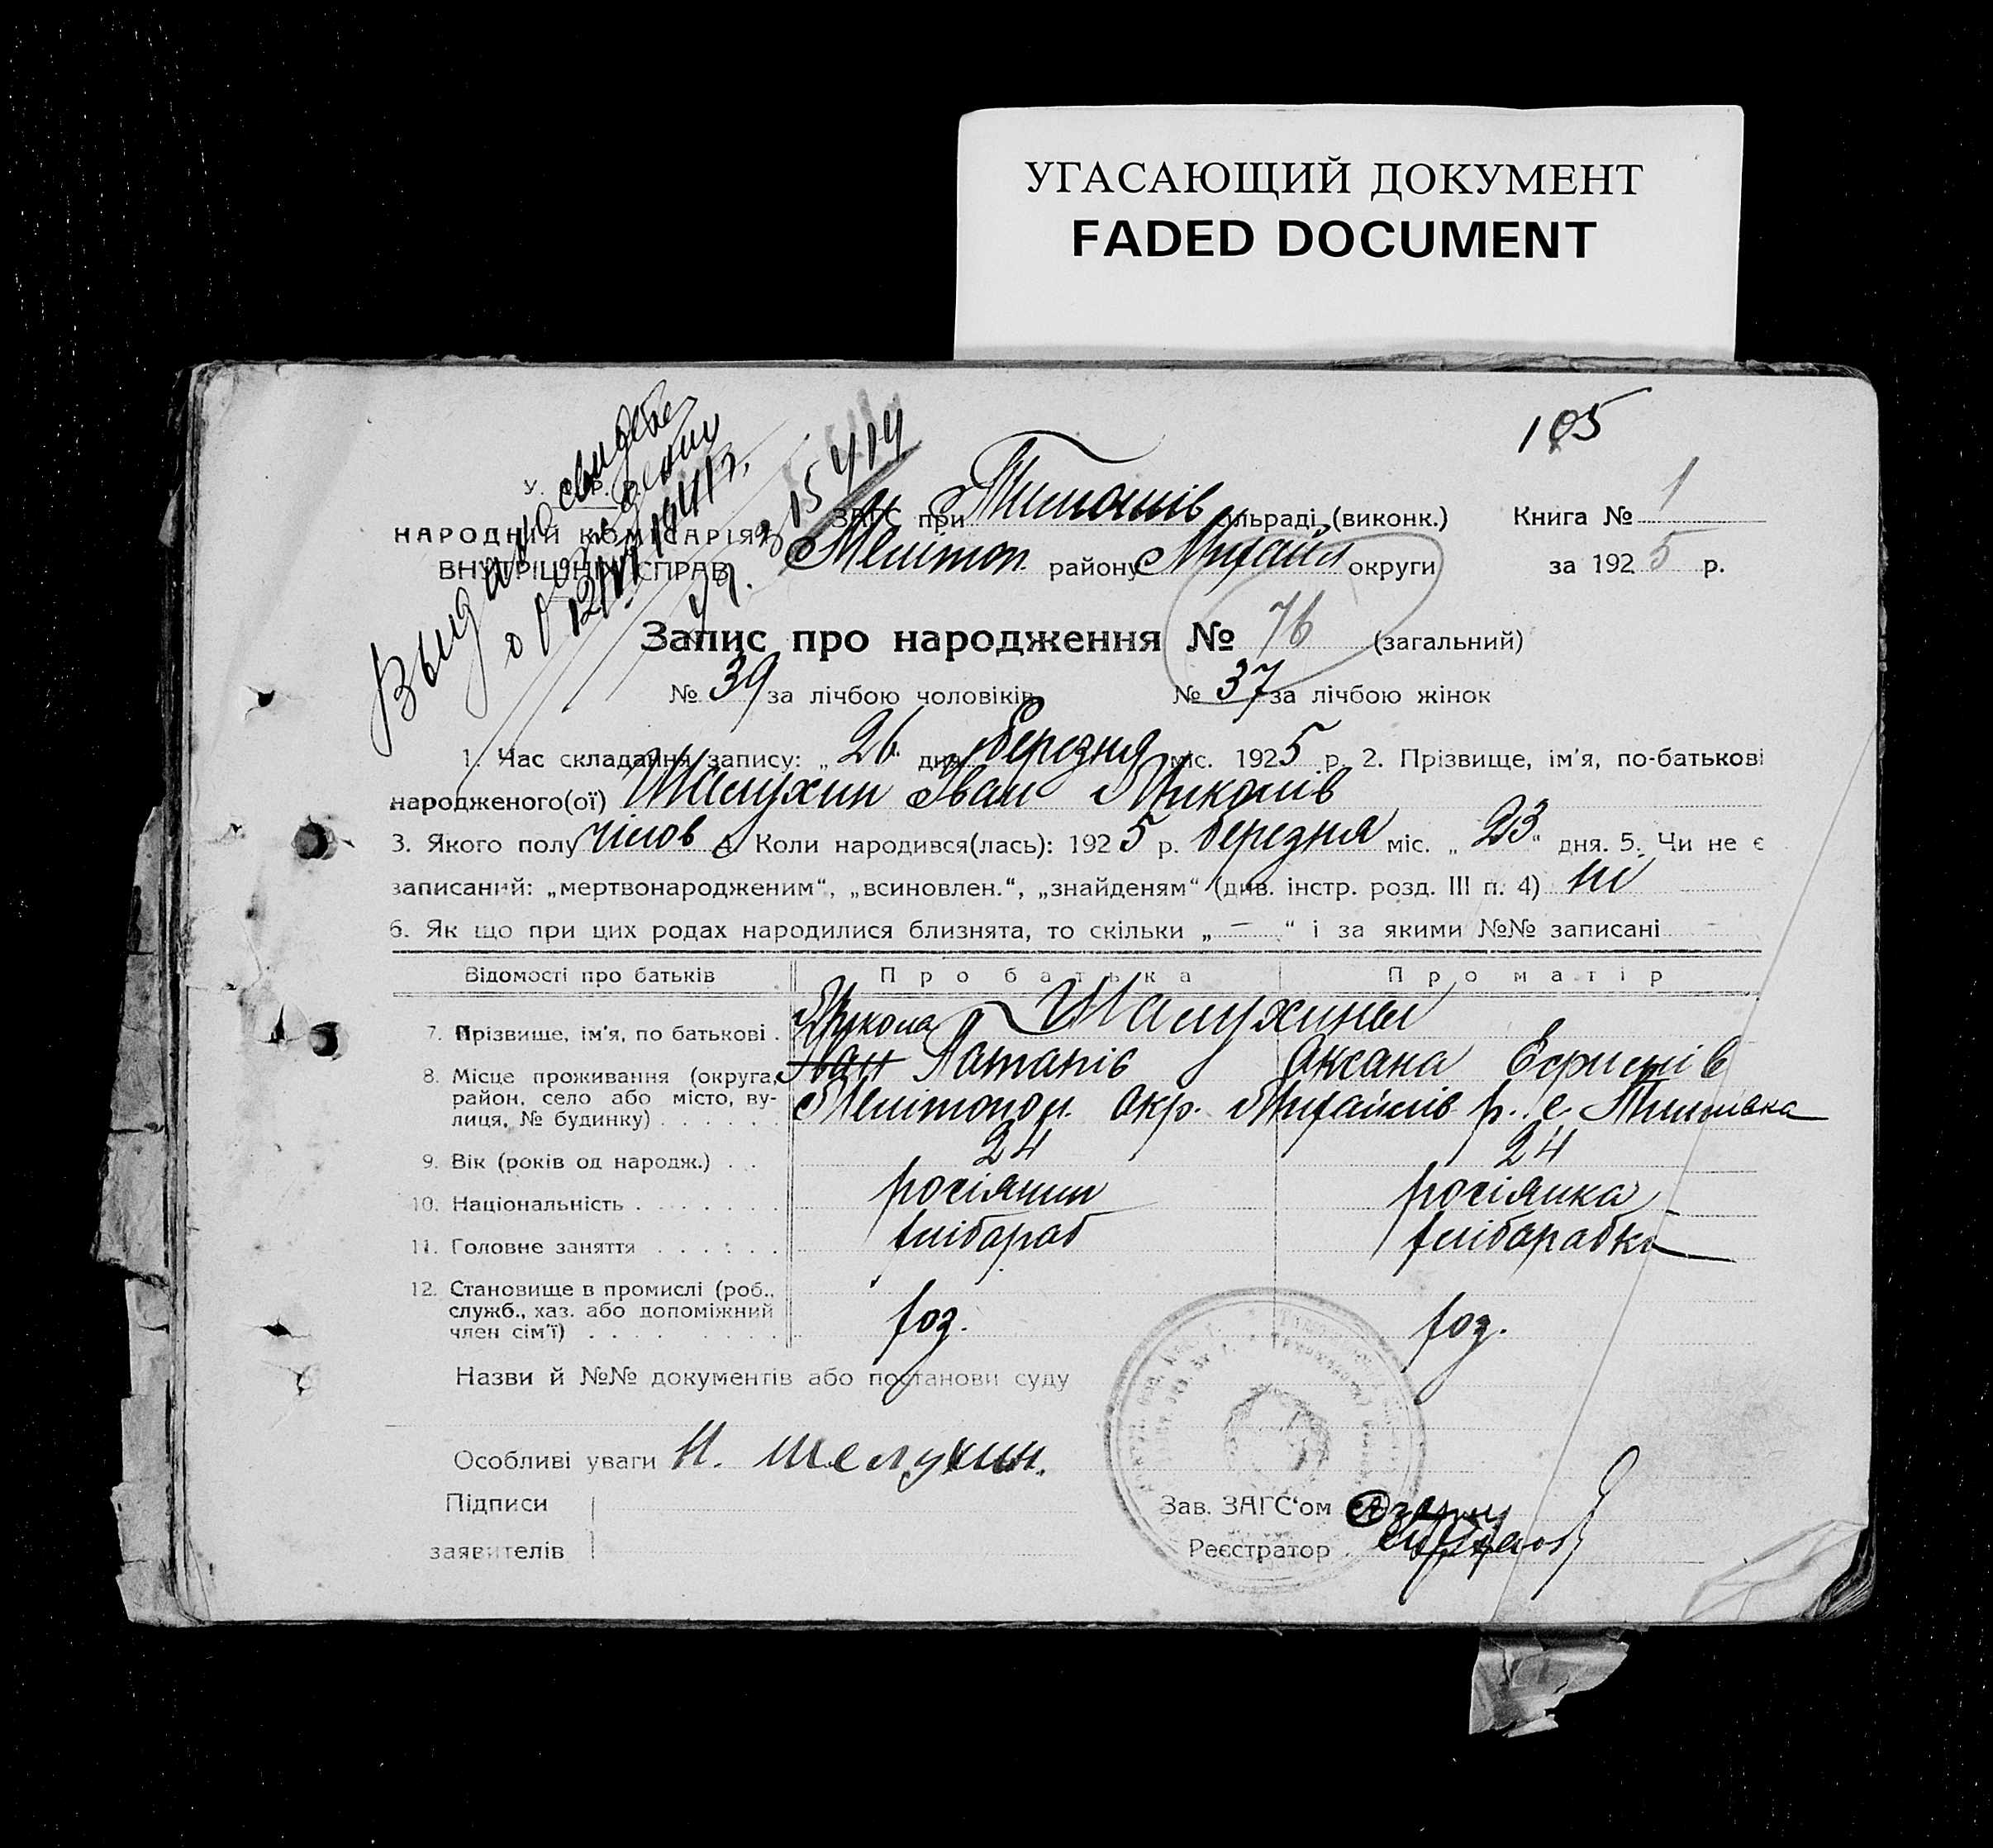 УГАСАЮЩИЙ ДОКУМЕНТ
FADED DOCUMENT
105
Выдано свидете
о рождении
12/VI 1941 г.
У. С. Р. Р.
НАРОДНІЙ КОМІСАРІЯТ
ВНУТРІШНІХ СПРАВ
ЗАГС при Тимошів сільраді, (виконк.)
Книга № 1
Мелітоп. району Михайл округи
за 1925 р.
Запис про народження № 76 (загальний)
№ 39 за лічбою чоловіків № 37 за лічбою жінок
1. Час складання запису: „26" дня березня міс. 1925 р. 2. Прізвище, ім'я, по-батькові
народженого(ої) Шелухин Іван Миколів
3. Якого полу чілов 4. Коли народився(лась): 1925 р. березня міс. „23" дня. 5. Чи не є
записаний: „мертвонародженим", „всиновлен.", „знайденям" (див. інстр. розд. III п. 4) ні
6. Як що при цих родах народилися близнята, то скільки „ — " і за якими №№ записані -
Відомості про батьків Про батька Про матір
7. Прізвище, ім'я, по батькові . Микола Шелухины
Іван Потапів Оксана Ефимів
8. Місце проживання (округа, район, село або місто, вулиця, № будинку) Мелітопол. окр. Михайлів р. с. Тимошівка
9. Вік (років од народж.) . . 24 24
10. Національність . . . . . . . росіянин росіянка
11. Головне заняття . . . . . . хлібораб хліборабка
12. Становище в промислі (роб., служб., хаз. або допоміжний член сім'ї) хоз. хоз.
Назви й №№ документів або постанови суду
Особливі уваги Н. Шелухин.
Підписи
заявителів
Зав. ЗАГС'ом
Реєстратор